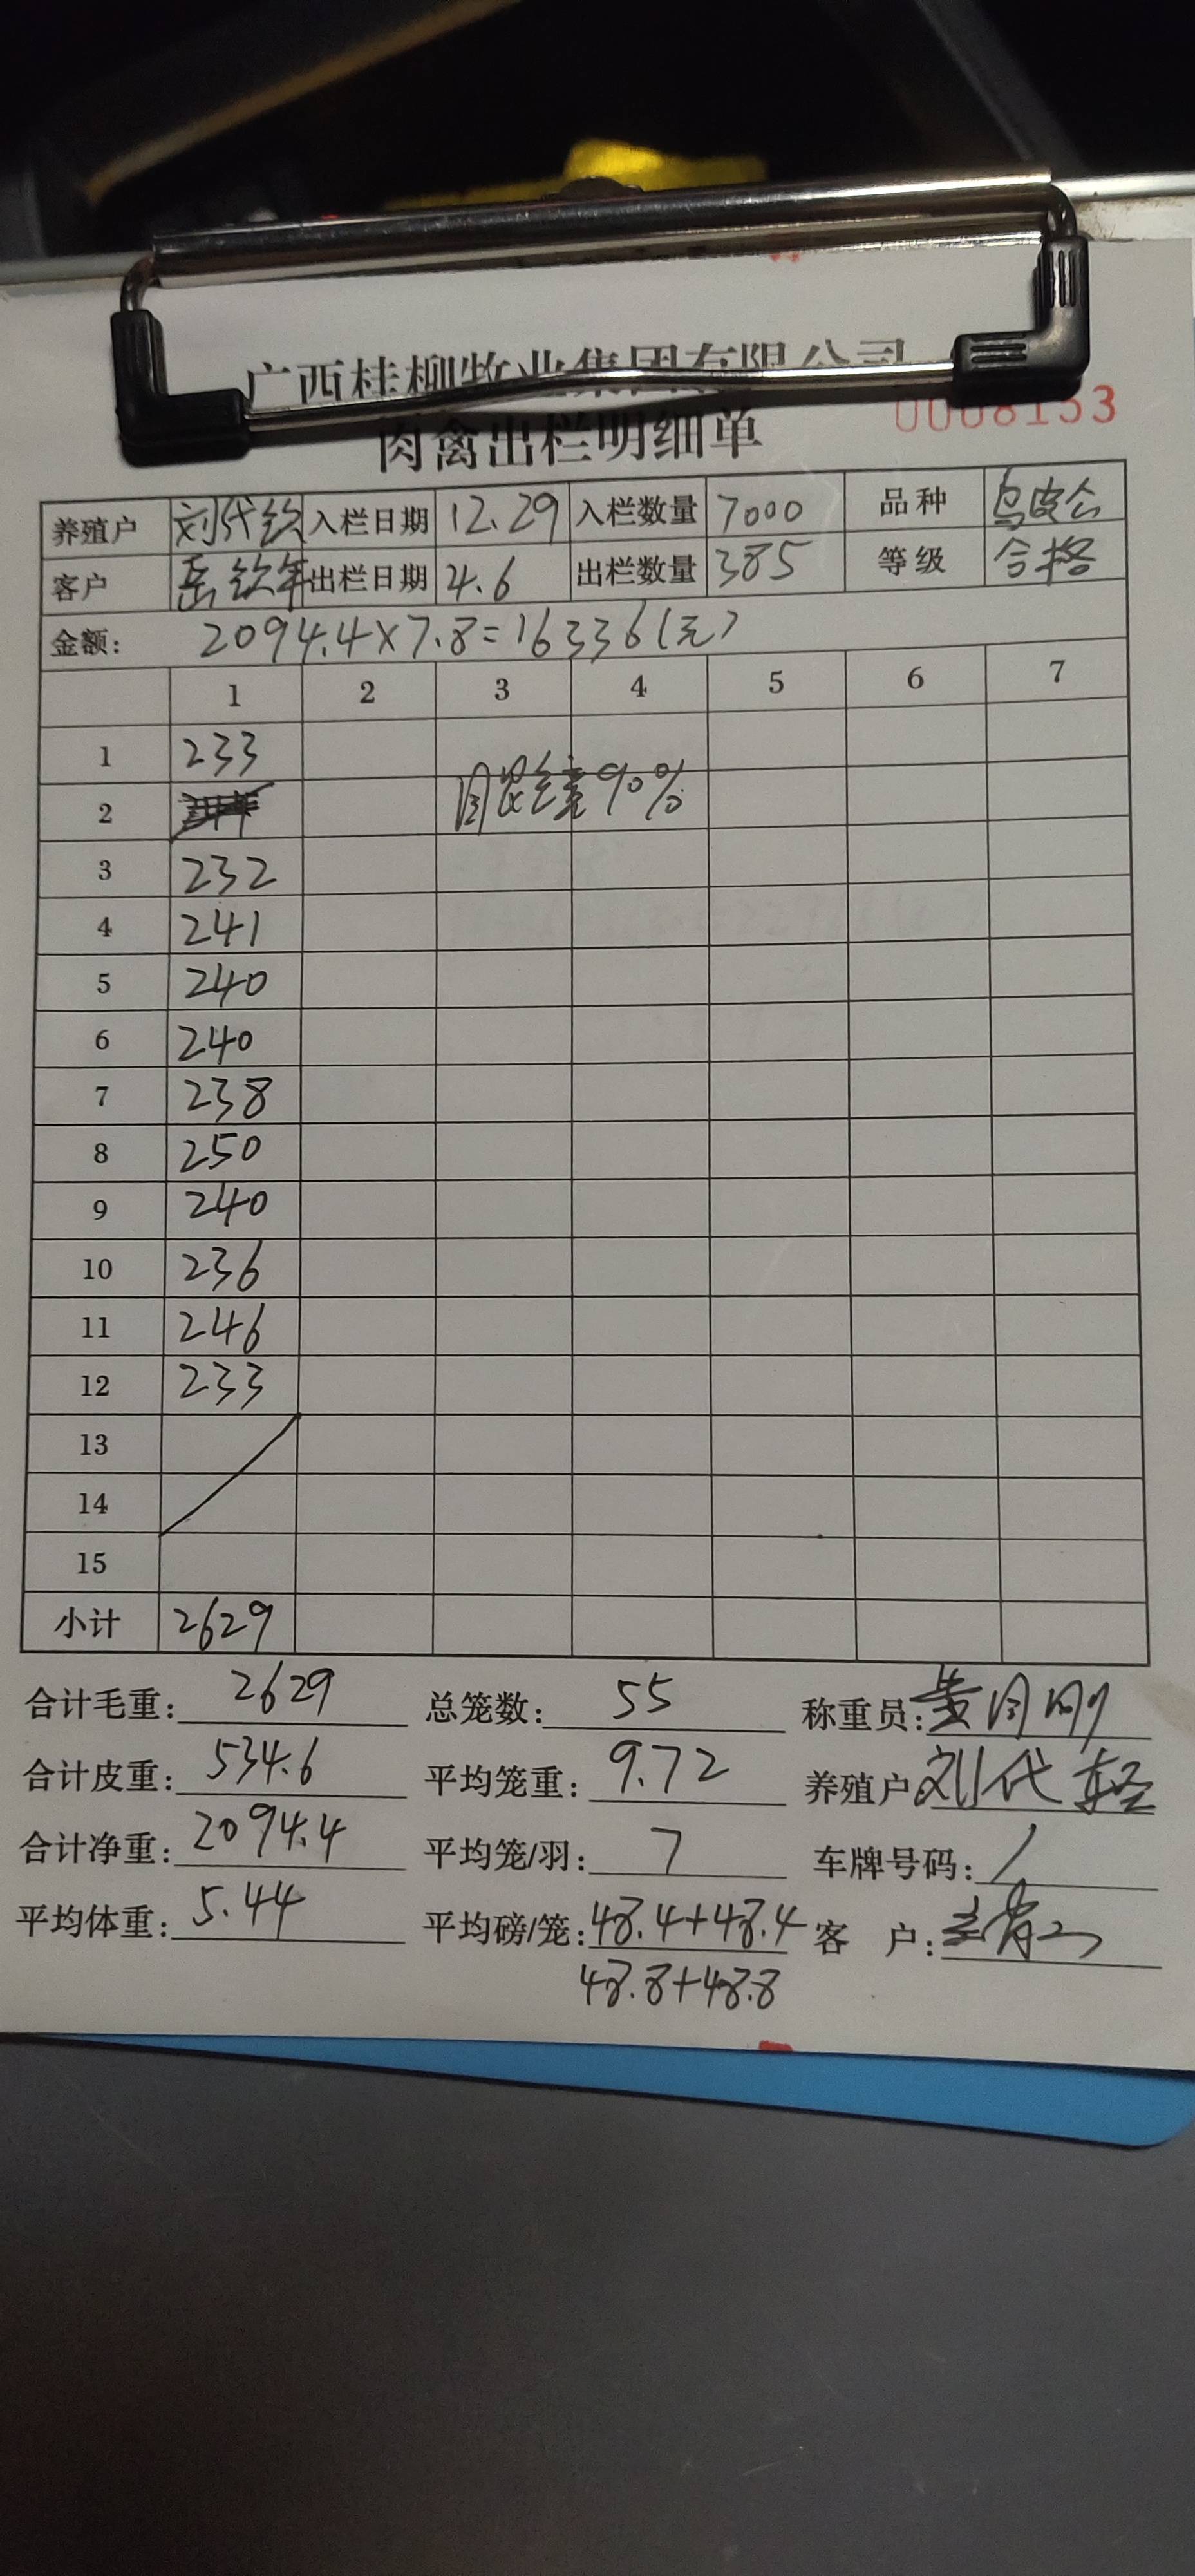 广西桂柳牧业集团有限公司
肉禽出栏明细单 0008153
养殖户 刘代钦 入栏日期 12.29 入栏数量 7000 品种 乌皮公
客户 岳钦年 出栏日期 4.6 出栏数量 385 等级 合格
金额: 2094.4×7.8=16336(元)
1 2 3 4 5 6 7
1 233
2 90%
3 232
4 241
5 240
6 240
7 238
8 250
9 240
10 236
11 246
12 233
13
14
15
小计 2629
合计毛重: 2629 总笼数: 55 称重员: 黄月刚
合计皮重: 534.6 平均笼重: 9.72 养殖户 刘代轻
合计净重: 2094.4 平均笼/羽: 7 车牌号码: /
平均体重: 5.44 平均磅/笼: 48.4+48.4 客 户:
48.8+48.8